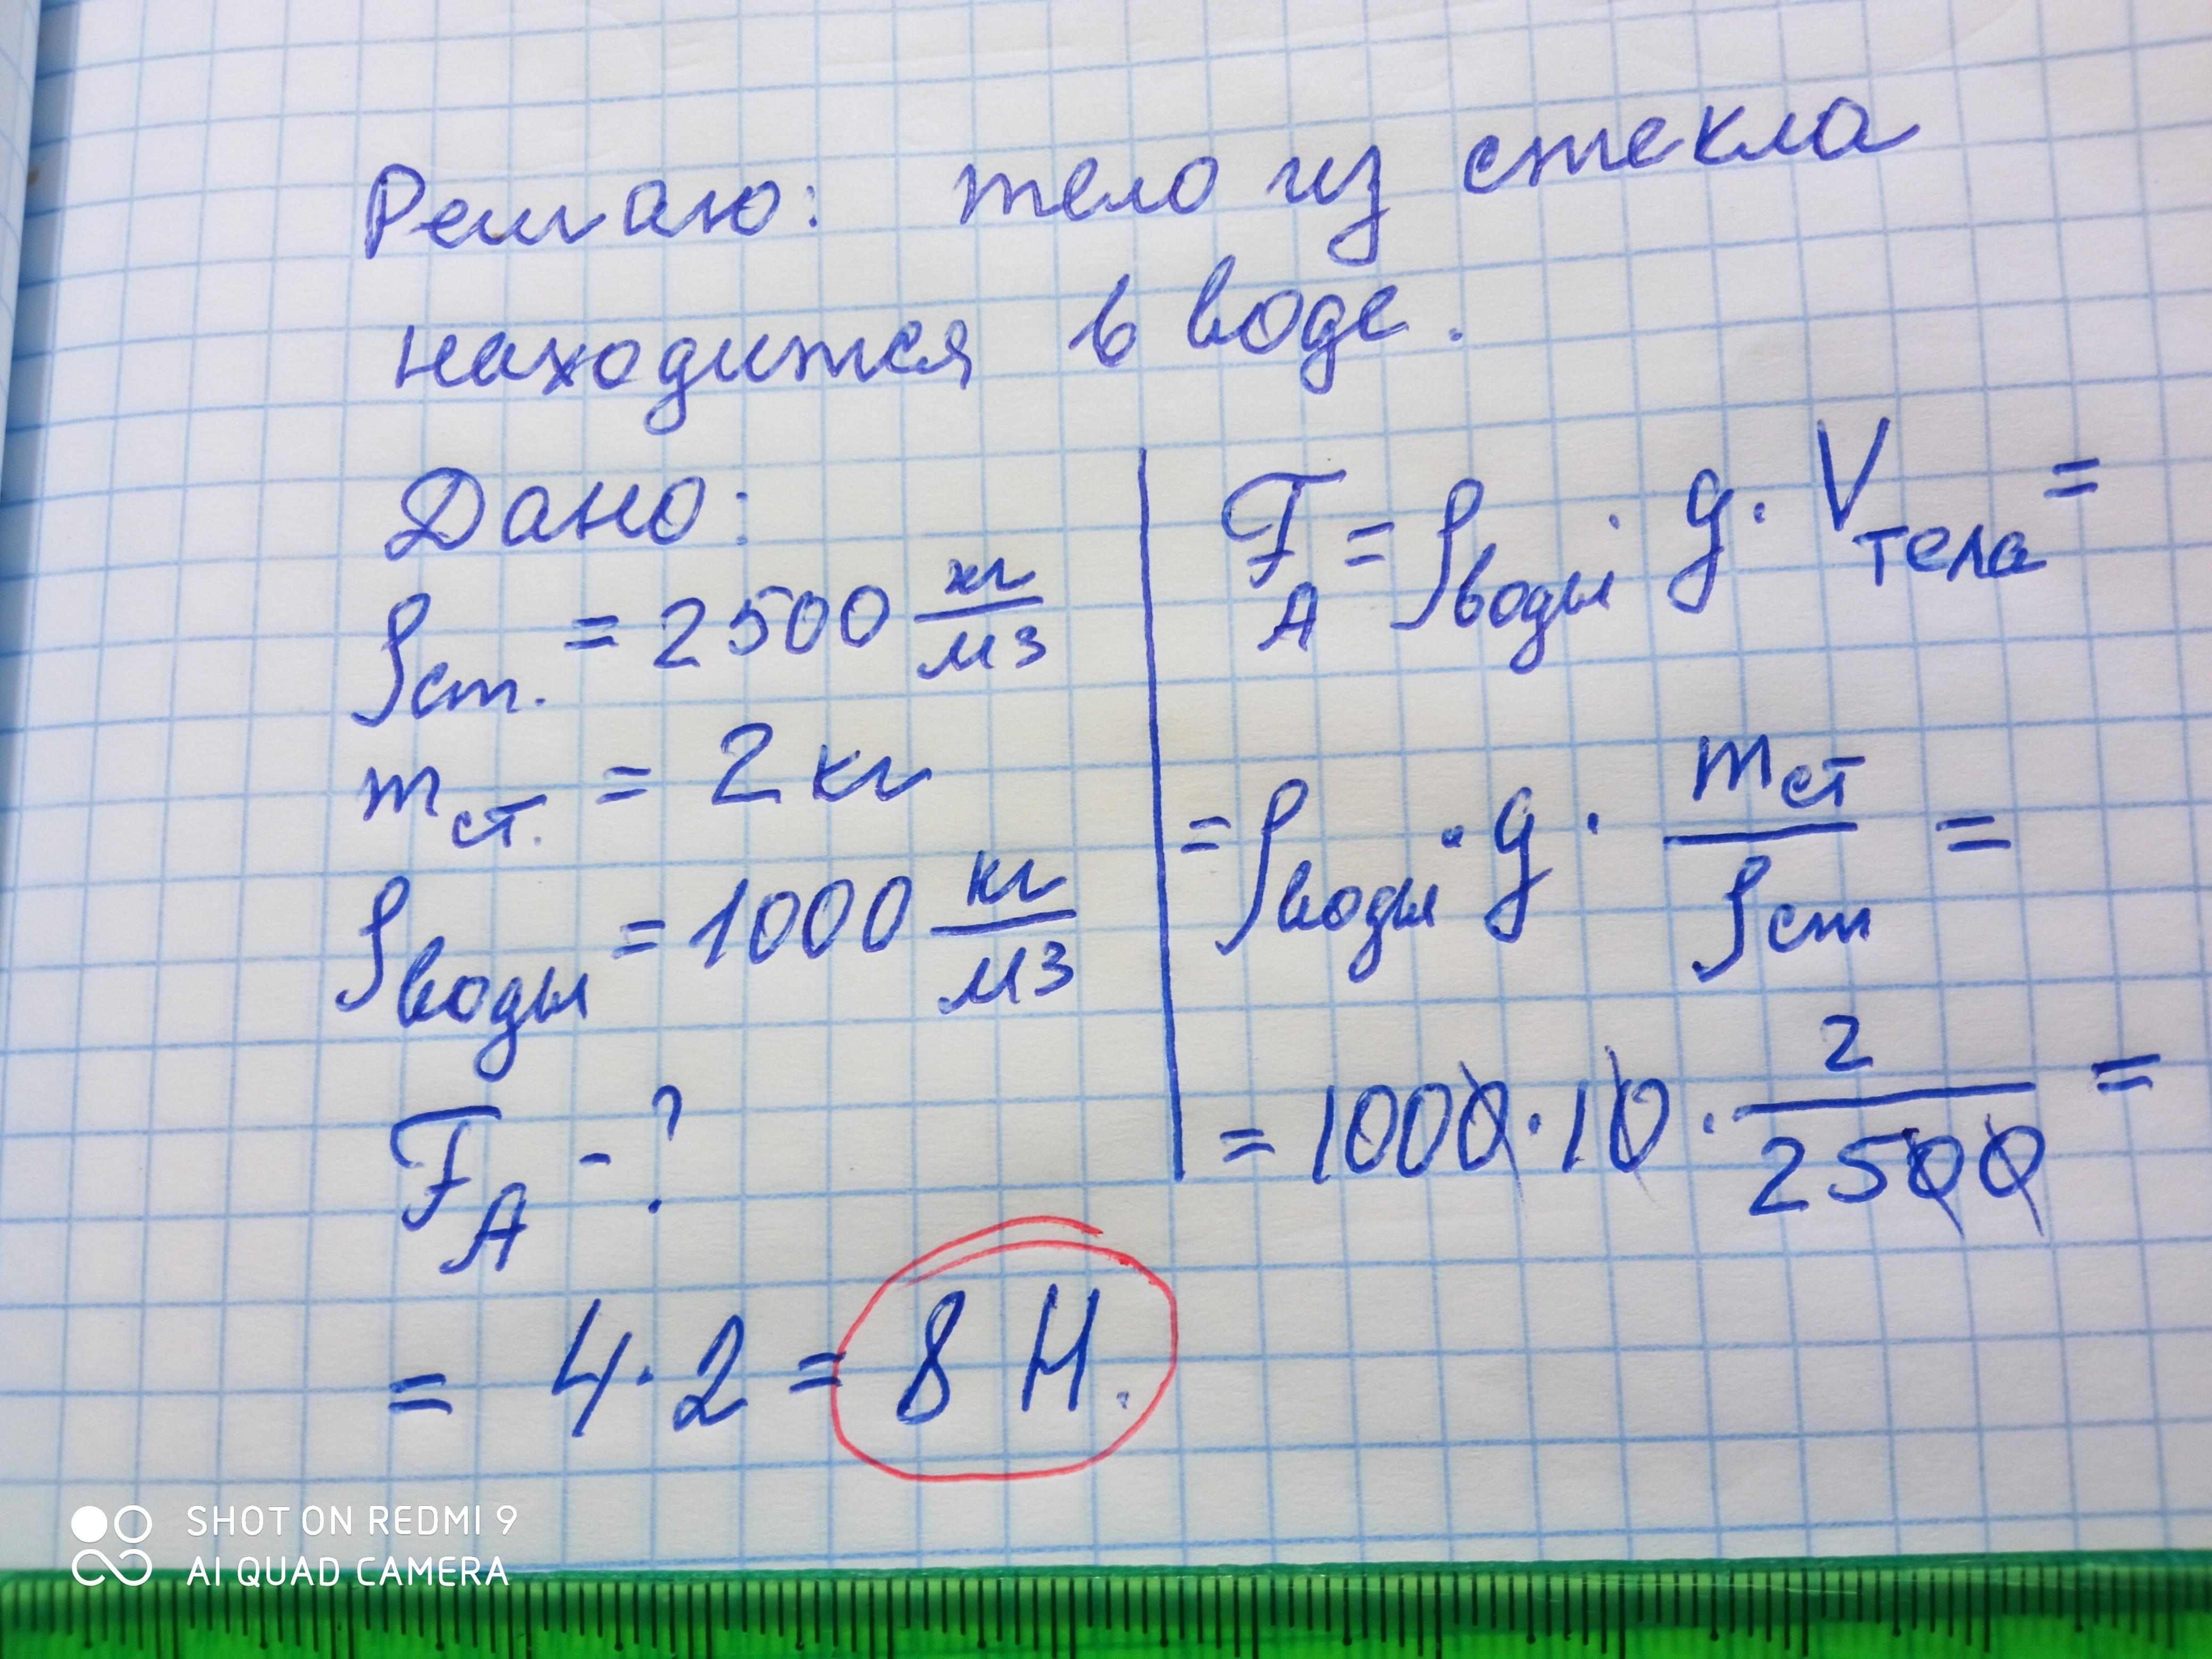 Решаю: тело из стекла
находится в воде.
Дано:
ρст. = 2500 кг/м3
mст. = 2 кг
ρводы = 1000 кг/м3
FA - ?
FA = ρводы · g · Vтела =
= ρводы · g · mст/ρст =
= 1000 · 10 · 2/2500 =
= 4 · 2 = 8 Н.
SHOT ON REDMI 9
AI QUAD CAMERA